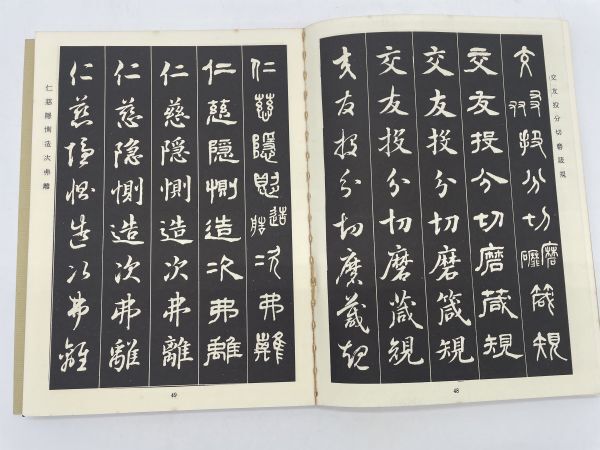 交友投分切磨箴規
交友投分切磨箴規
交友投分切磨箴規
交友投分切磨箴規
交友投分切磨箴規
交友投分切磨箴規
48
仁慈隱惻造次弗離
仁慈隱惻造次弗離
仁慈隱惻造次弗離
仁慈隐惻造次弗離
仁慈隱惻造次弗離
仁慈隠惻造次弗離
49